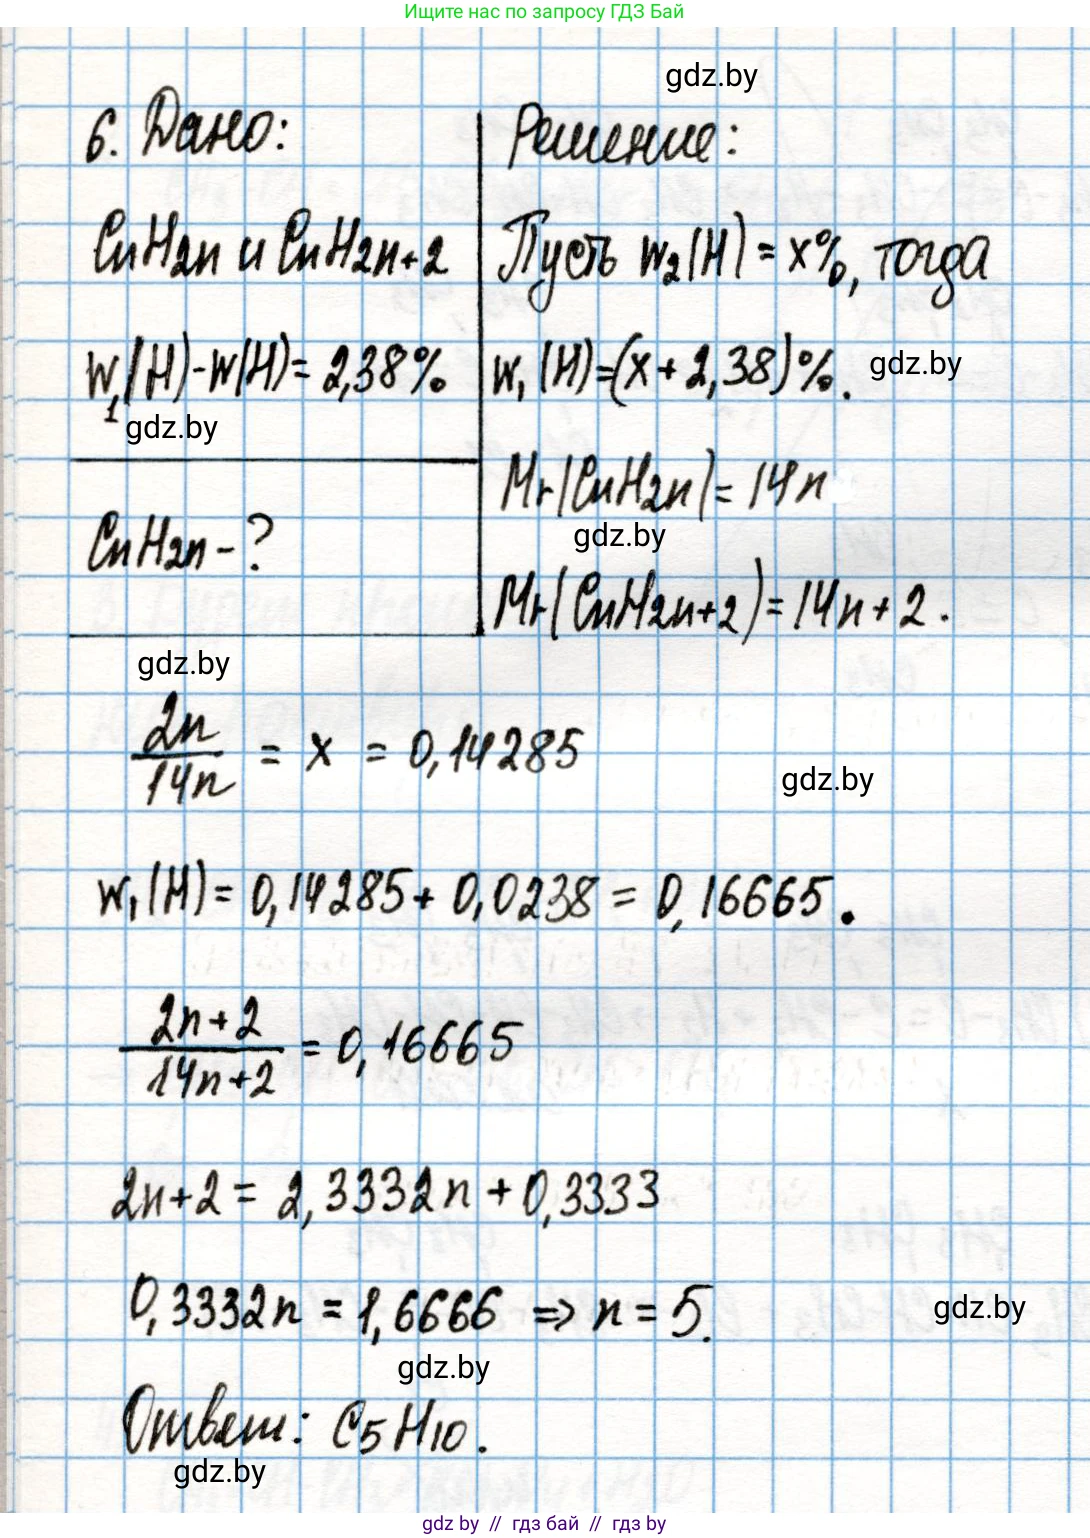 Ищите нас по запросу ГДЗ Бай
gdz.by
6. Дано:
CnH2n и CnH2n+2
w1(H)-w(H)= 2,38%
gdz.by
CnH2n - ?
Решение:
Пусть w2(H) = x%, тогда
w1(H)=(x+2,38)%.
gdz.by
Mr(CnH2n)= 14n
gdz.by
Mr(CnH2n+2)= 14n+2.
gdz.by
2n/14n = x = 0,14285
gdz.by
w1(H)= 0,14285+ 0,0238 = 0,16665.
2n+2/14n+2 = 0,16665
2n+2 = 2,3332n + 0,3333
0,3332n = 1,6666 => n = 5.
gdz.by
gdz.by
Ответ: C5H10.
gdz.by
gdz.by // гдз бай // гдз by